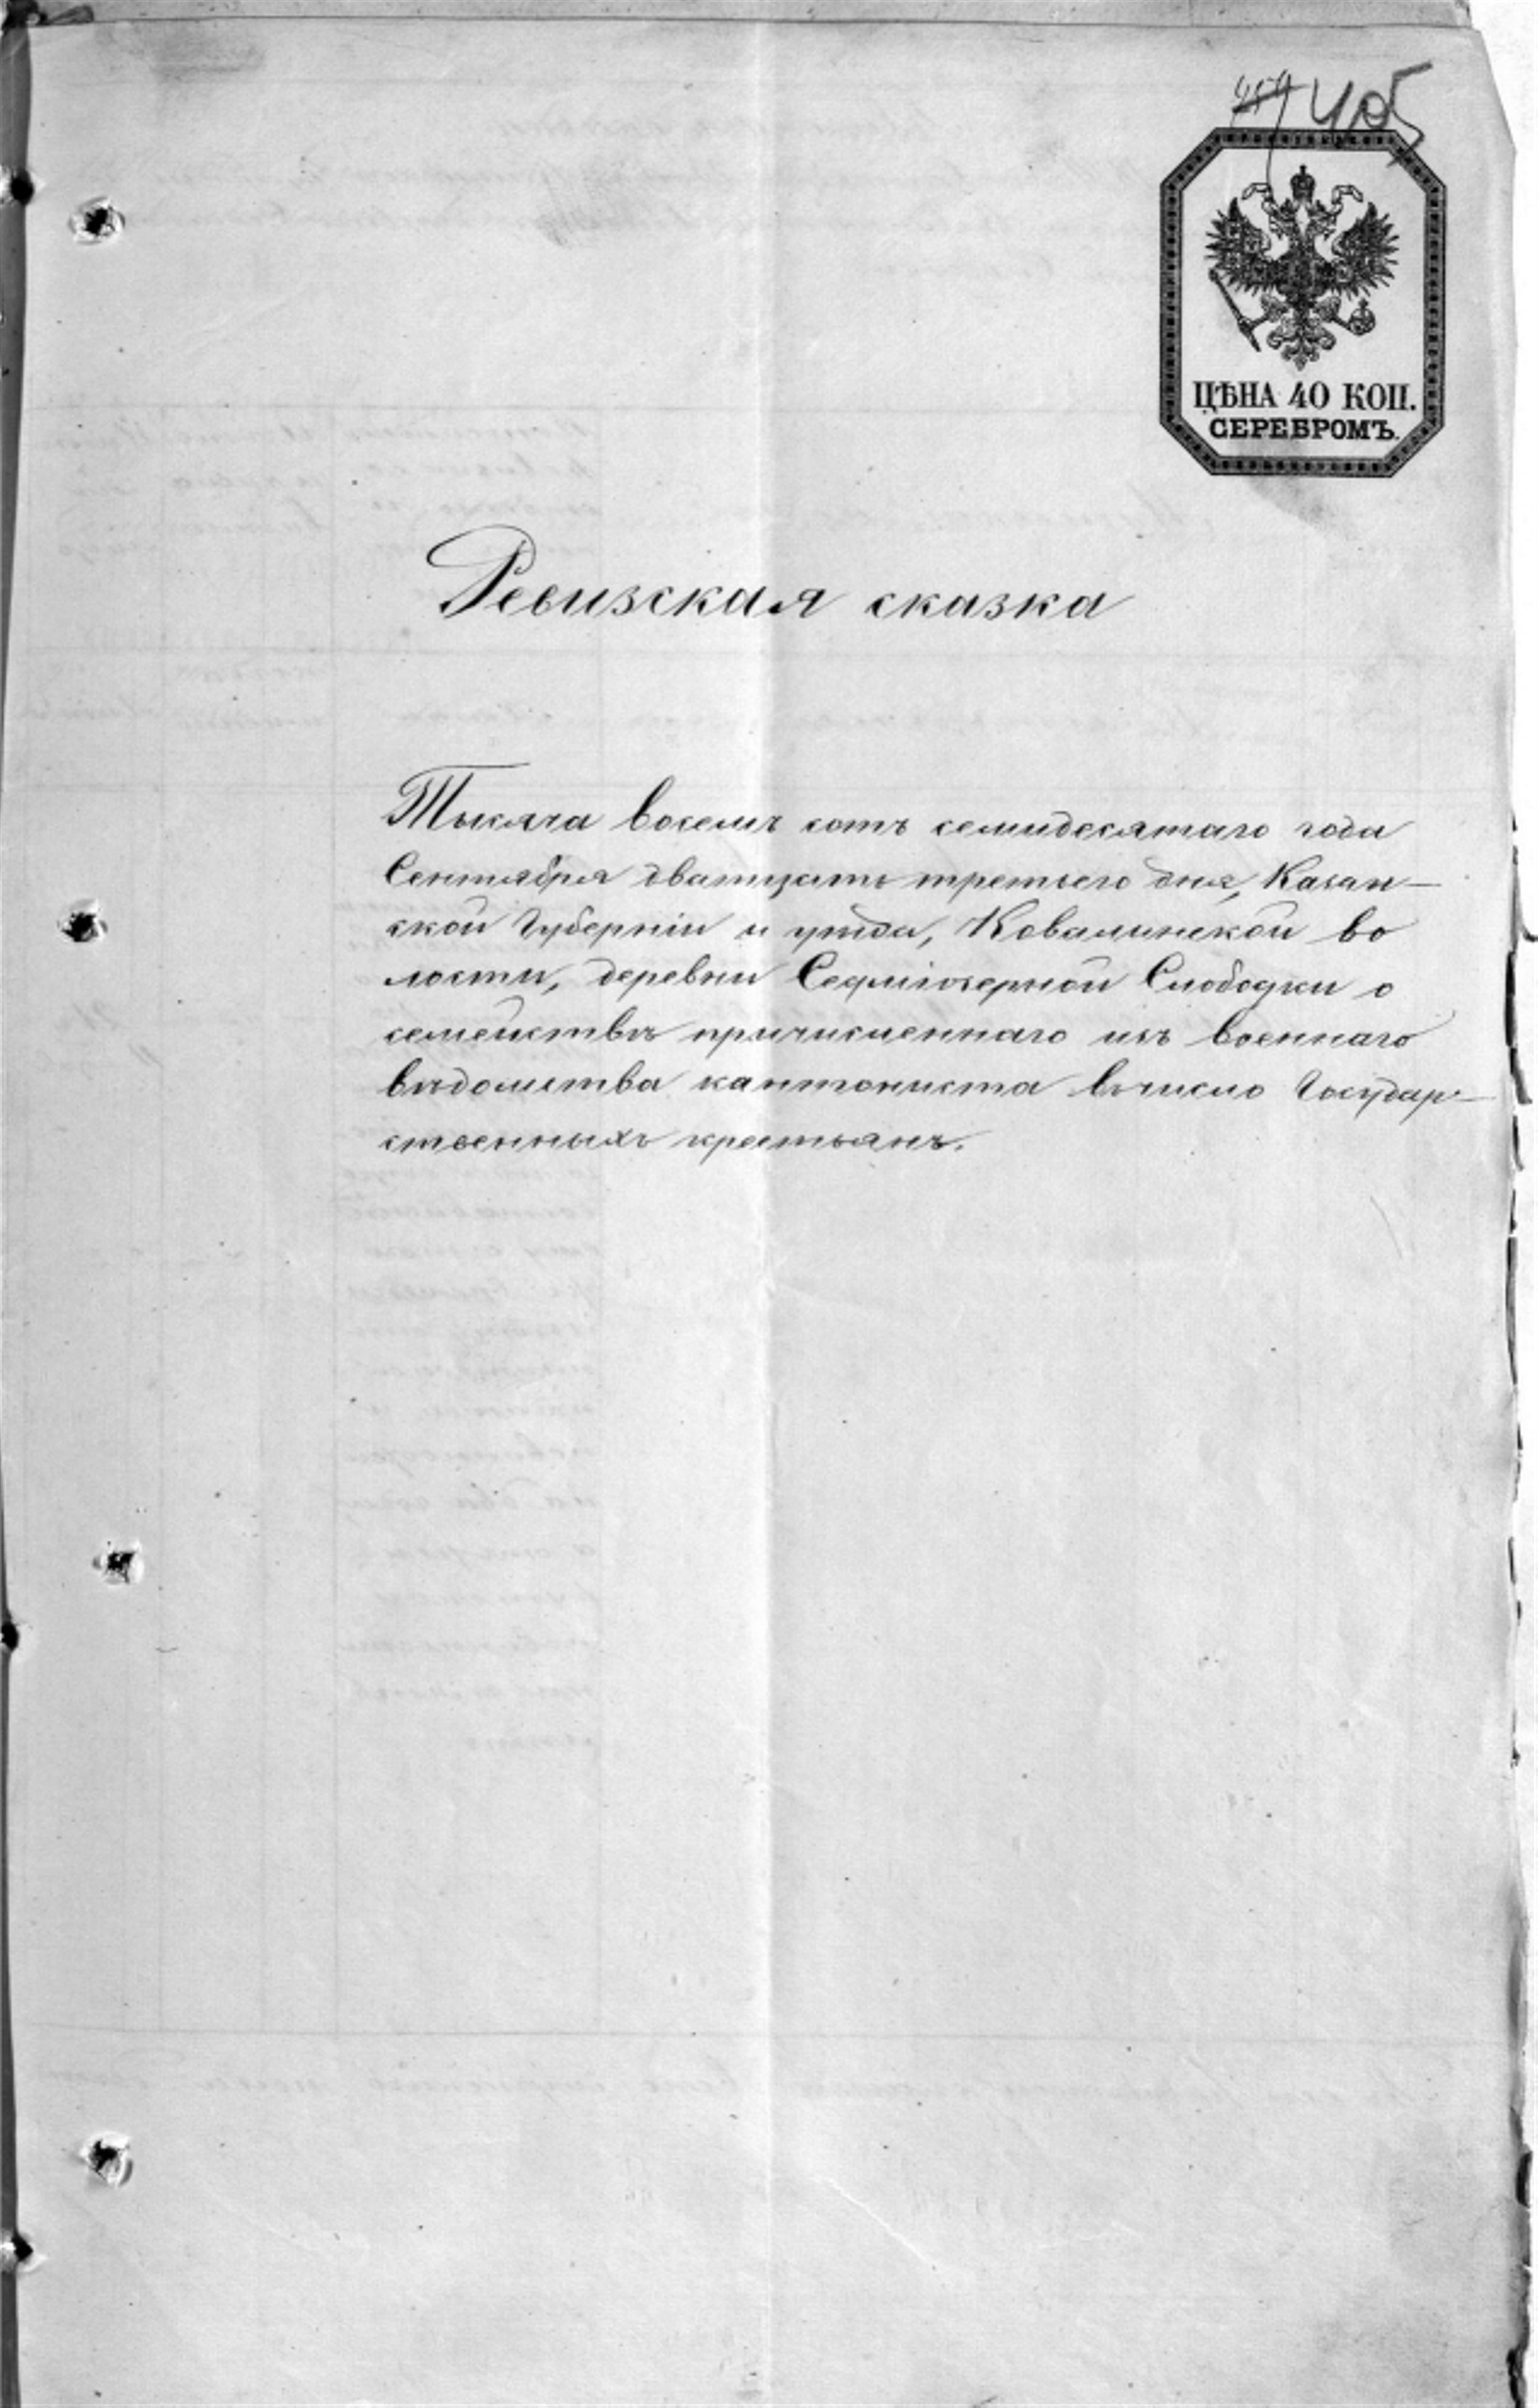 405
ЦѢНА 40 КОП.
СЕРЕБРОМЪ.
Ревизская сказка
Тысяча восемь сотъ семидесятаго года
Сентября дватцать третьего дня, Казан-
ской Губерніи и уѣзда, Ковалинской во
лости, деревни Седміозерной Слободки о
семействѣ причисленнаго изъ военнаго
вѣдомства кантониста вчисло Государ-
ственныхъ крестьянъ.